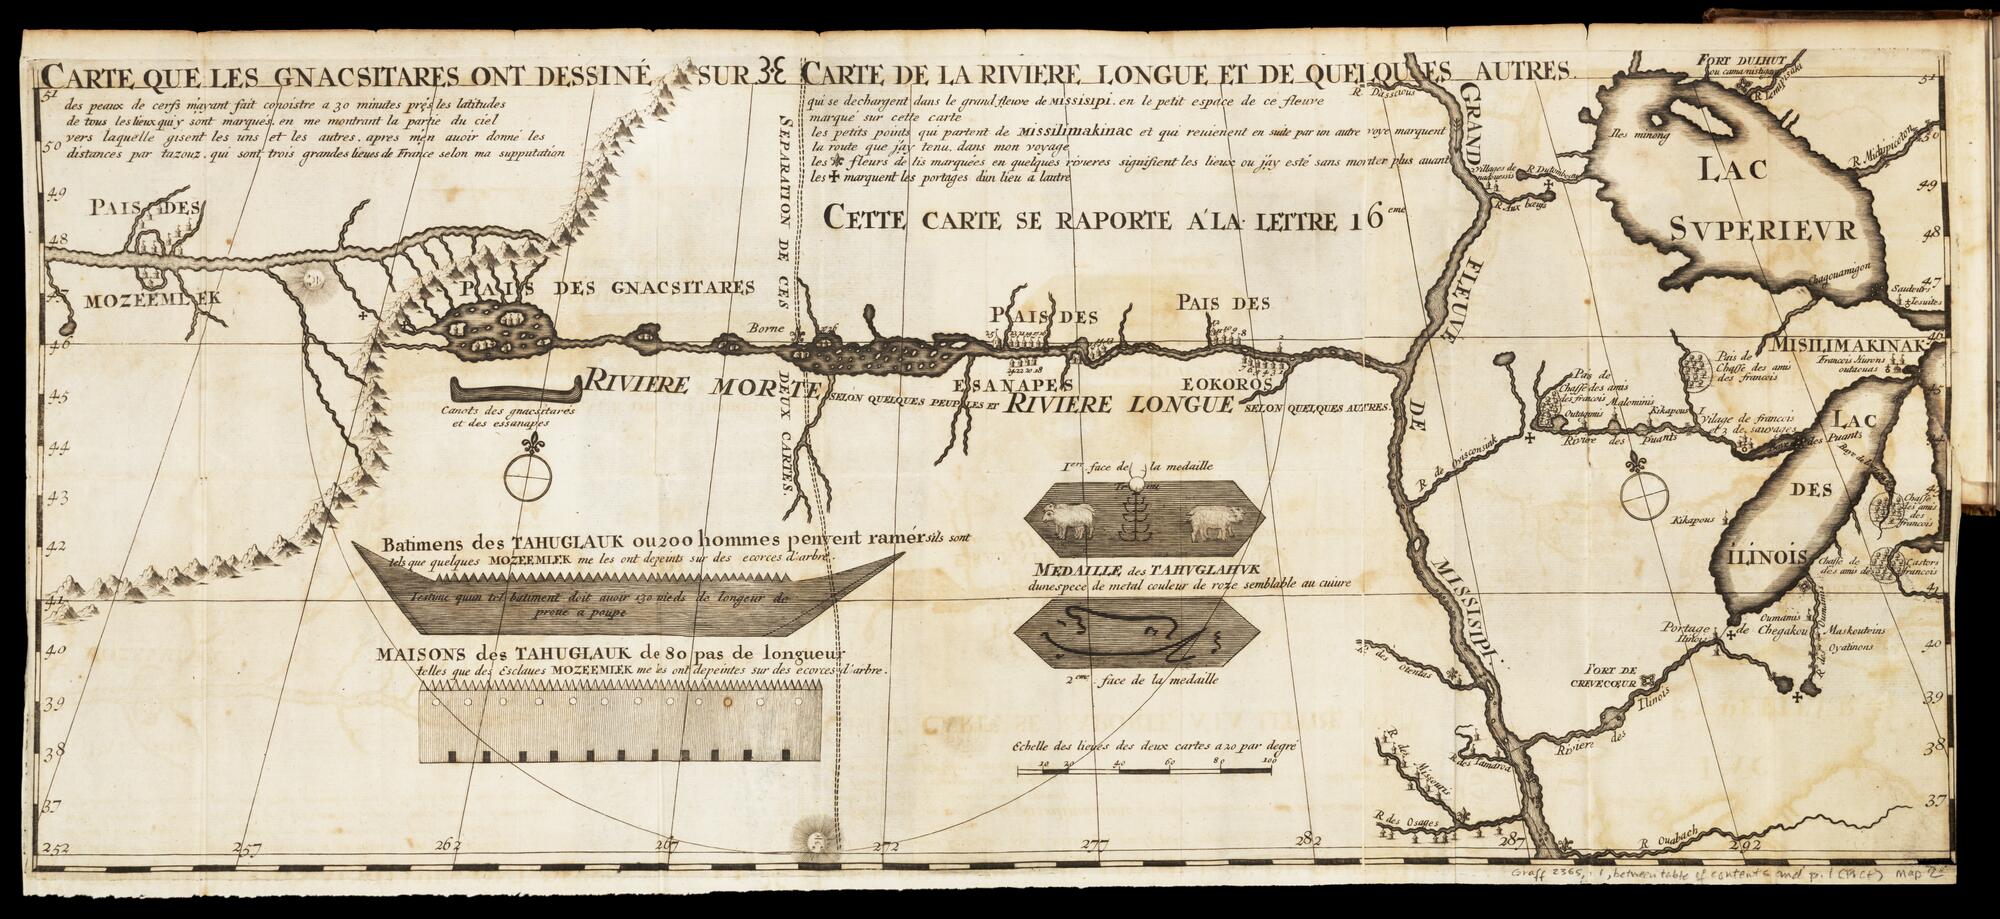 CARTE QUE LES GNACSITARES ONT DESSINÉ SUR
des peaux de cerfs m'ayant fait conoistre a 30 minutes prés les latitudes
de tous les lieux qui y sont marqués, en me montrant la partie du ciel
vers laquelle gisent les uns et les autres, apres m'en auoir donné les
distances par tazouz, qui sont trois grandes lieues de France selon ma supputation
CARTE DE LA RIVIERE LONGUE ET DE QUELQUES AUTRES
qui se dechargent dans le grand fleuve de MISSISIPI, en le petit espace de ce fleuve
marqué sur cette carte
les petits points qui partent de MISSILIMAKINAC et qui reuienent en suite par un autre voye marquent
la route que j'ay tenu, dans mon voyage
les fleurs de lis marquées en quelques rivieres signifient les lieux ou j'ay esté sans monter plus auant
les ✠ marquent les portages d'un lieu a lautre
CETTE CARTE SE RAPORTE A LA LETTRE 16 eme
SEPARATION DE CES DEUX CARTES.
PAIS DES
MOZEEMLEK
PAIS DES GNACSITARES
Borne
PAIS DES
ESANAPES
PAIS DES
EOKOROS
RIVIERE MORTE SELON QUELQUES PEUPLES ET RIVIERE LONGUE SELON QUELQUES AUTRES.
Canots des gnacsitares
et des essanapes
Batimens des TAHUGLAUK ou 200 hommes peuvent ramér s'ils sont
tels que quelques MOZEEMLEK me les ont depeints sur des ecorces d'arbre.
J'estime qu'un tel batiment doit auoir 130 pieds de longeur de
proue a poupe
MAISONS des TAHUGLAUK de 80 pas de longueur
telles que des Esclaues MOZEEMLEK me les ont depeintes sur des ecorces d'arbre.
1ere face de la medaille
MEDAILLE des TAHVGLAHVK
dunespece de metal couleur de roze semblable au cuiure
2eme face de la medaille
Echelle des lieues des deux cartes a 20 par degré
10 20 40 60 80 100
GRAND FLEUVE DE MISSISIPI
Villages de
R Aux bœufs
FORT DULHUT
R Lemipisaki
R Michipicoton
Iles minong
LAC
SVPERIEVR
Chagouamigon
Sauteurs
Jesuites
MISILIMAKINAK
Francois Hurons
outaouas
Pais de
Chasse des amis
des francois
Pais de
Chasse des amis
des francois
Outagamis
Malominis
Kikapous
Vilage de francois
et 2 de sauvages
Riviere des Puants
R de Ouisconsink
LAC
DES
ILINOIS
Kikapous
Chasse
des amis
des
francois
Chasse de
des amis de
Castors
francois
Portage de Chegakou
Ilinois
Oumamis
Maskouteins
Oyatinons
FORT DE
CREVECŒUR
Riviere des Ilinois
R des Otentas
R des Missouris
R des Tamaroa
R des Osages
R Ouabach
51
50
49
48
47
46
45
44
43
42
41
40
39
38
37
51
50
49
48
47
46
41
40
39
38
37
252 257 262 267 272 277 282 287 292
Graff 2365, v. 1, between table of contents and p. 1 (Pt. Ct) Map 2